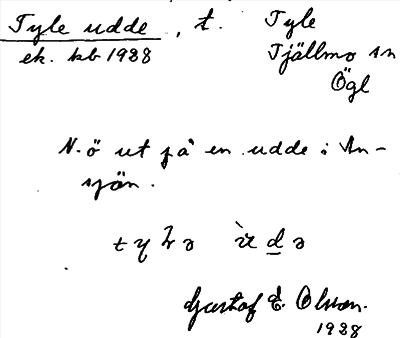 Tyle udde, t. Tyle
ek. kb 1928 Tjällmo sn
Ögl
N.ö ut på en udde i An-
sjön.
Gustaf E. Olson.
1928